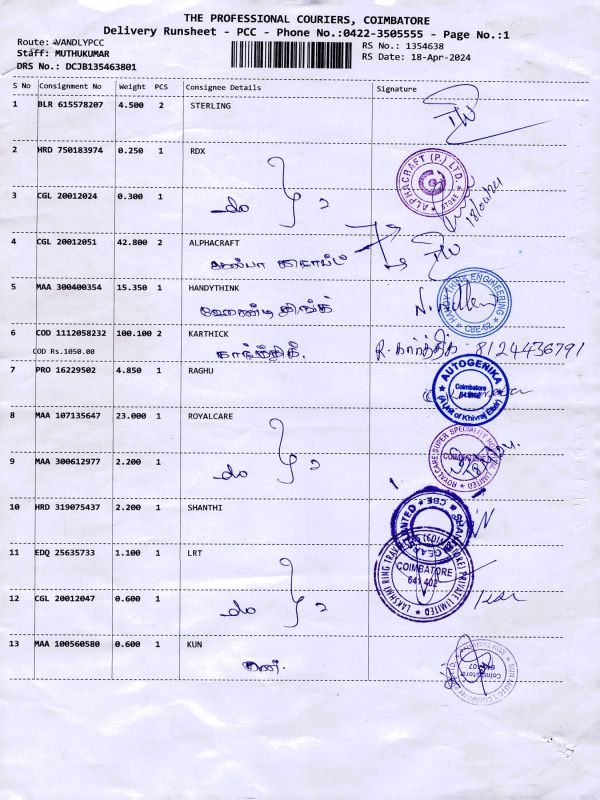 THE PROFESSIONAL COURIERS, COIMBATORE
Delivery Runsheet - PCC - Phone No.:0422-3505555 - Page No.:1
Route: VANDLYPCC
RS No.: 1354638
Staff: MUTHUKUMAR
RS Date: 18-Apr-2024
DRS No.: DCJB135463801
S No Consignment No Weight PCS Consignee Details Signature
1 BLR 615578207 4.500 2 STERLING
2 HRD 750183974 0.250 1 RDX
ALPHACRAFT (P.) LTD. ★ STORE ★
3 CGL 20012024 0.300 1
do 2
18/04/24
4 CGL 20012051 42.800 2 ALPHACRAFT
5 MAA 300400354 15.350 1 HANDYTHINK
HANDYTHINK ENGINEERING ★ CBE-62 ★
6 COD 1112058232 100.100 2 KARTHICK
COD Rs.1050.00
கார்த்திக். R. கார்த்திக். 8124436791
7 PRO 16229502 4.850 1 RAGHU
★ AUTOGENIKA ★ Coimbatore (A Unit of Khivraj Elixir)
8 MAA 107135647 23.000 1 ROYALCARE
ROYALCARE SUPER SPECIALITY LIMITED
9 MAA 300612977 2.200 1
do 2
10 HRD 319075437 2.200 1 SHANTHI
11 EDQ 25635733 1.100 1 LRT
LAKSHMI RING PRIVATE LIMITED COIMBATORE 641 402
12 CGL 20012047 0.600 1
do 2
13 MAA 100560580 0.600 1 KUN